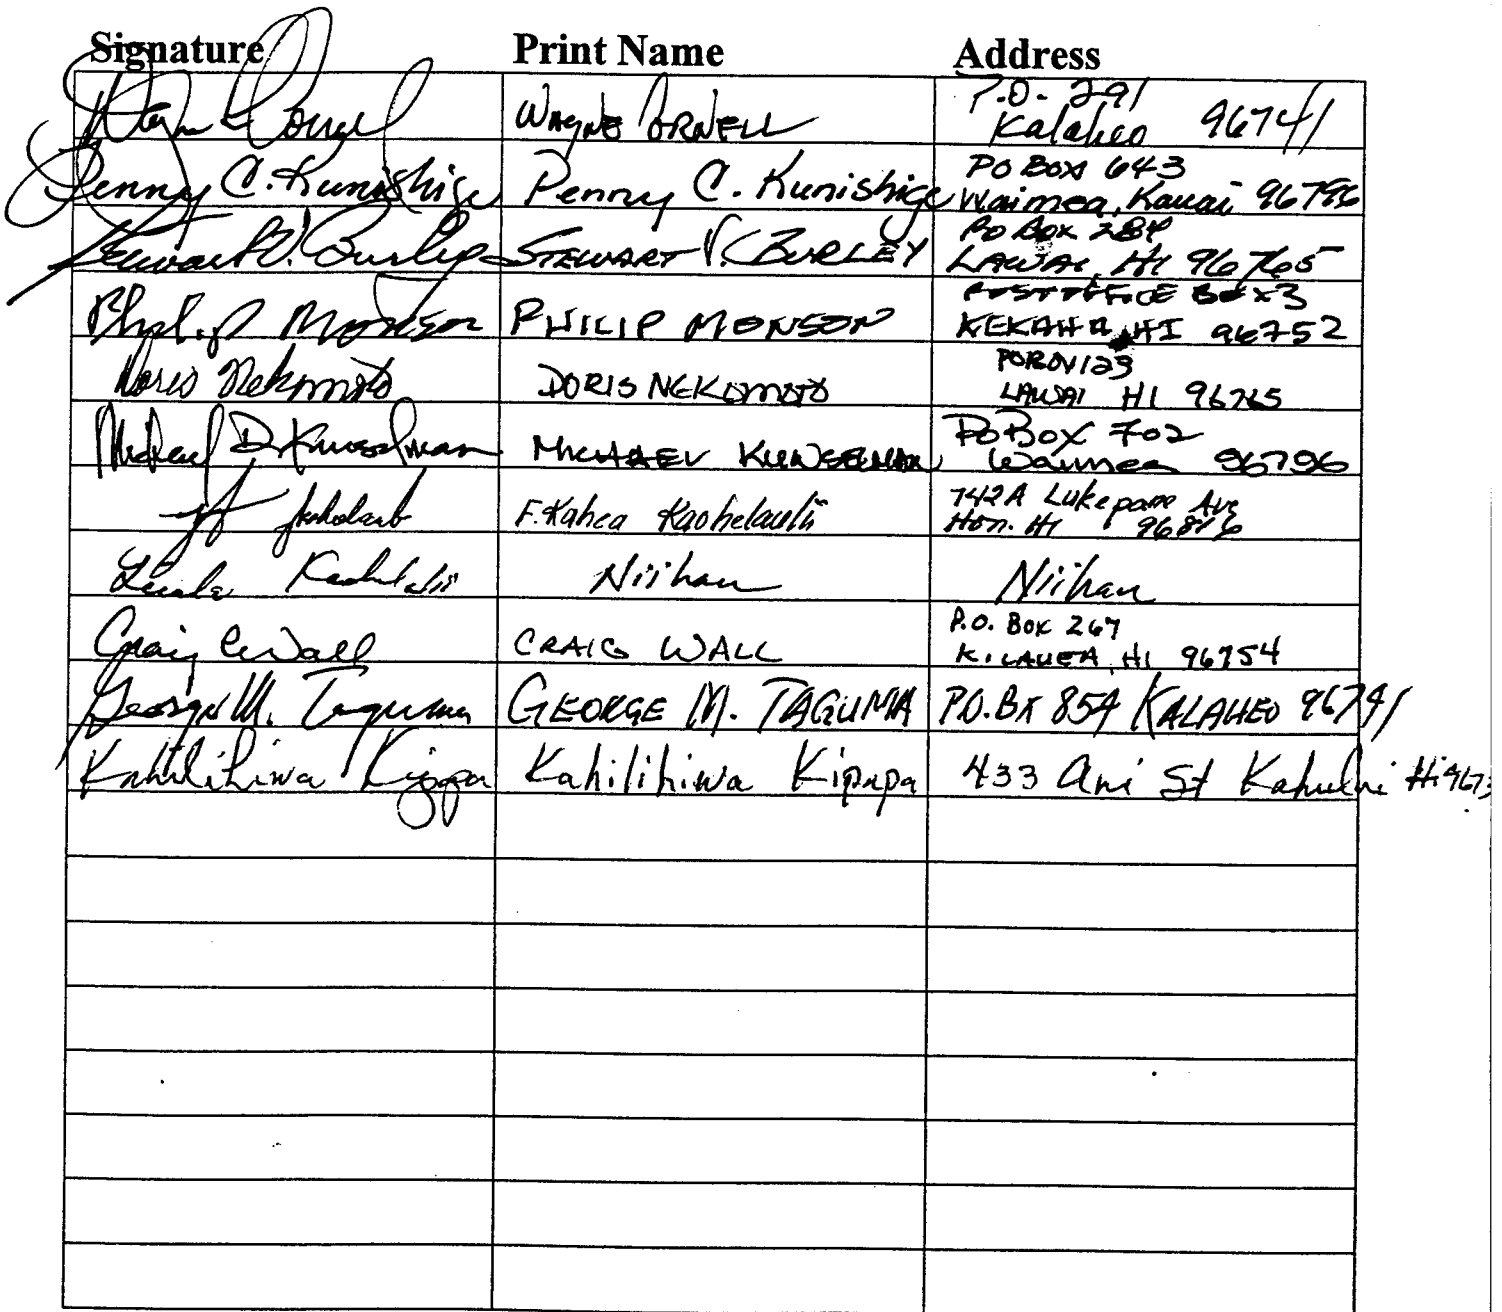 Signature Print Name Address
P.O. 291
Wayne Kalaheo 96741
Penny C. Kunishige Penny C. Kunishige PO Box 643
Waimea, Kauai 96796
Stewart V. Burley STEWART V. BURLEY PO Box 284
LAWAI, HI 96765
Philip Monson PHILIP MONSON POST OFFICE BOX 3
KEKAHA HI 96752
Doris Nekomoto DORIS NEKOMOTO
LAWAI HI 96765
Michael D. Kunselman MICHAEL KUNSELMAN PO BOX 702
Waimea 96796
F. Kahea Kaohelaulii 742A Lukepane Ave
Hon. HI 96816
Niihau Niihau
Craig Wall CRAIG WALL P.O. Box 267
KILAUEA, HI 96754
George M. Taguma GEORGE M. TAGUMA P.O. BX 854 KALAHEO 96741
Kahilihiwa Kipapa Kahilihiwa Kipapa 433 Ani St Kahului Hi 9673